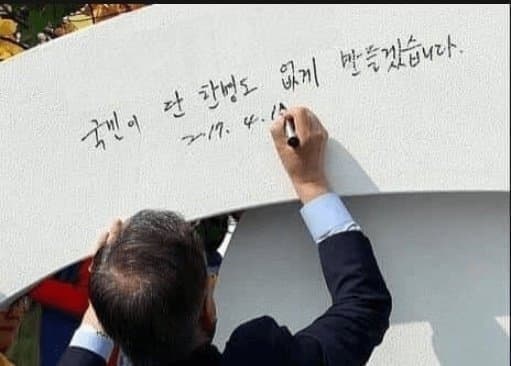 국민이 단 한명도 없게 만들겠습니다.
2017. 4.